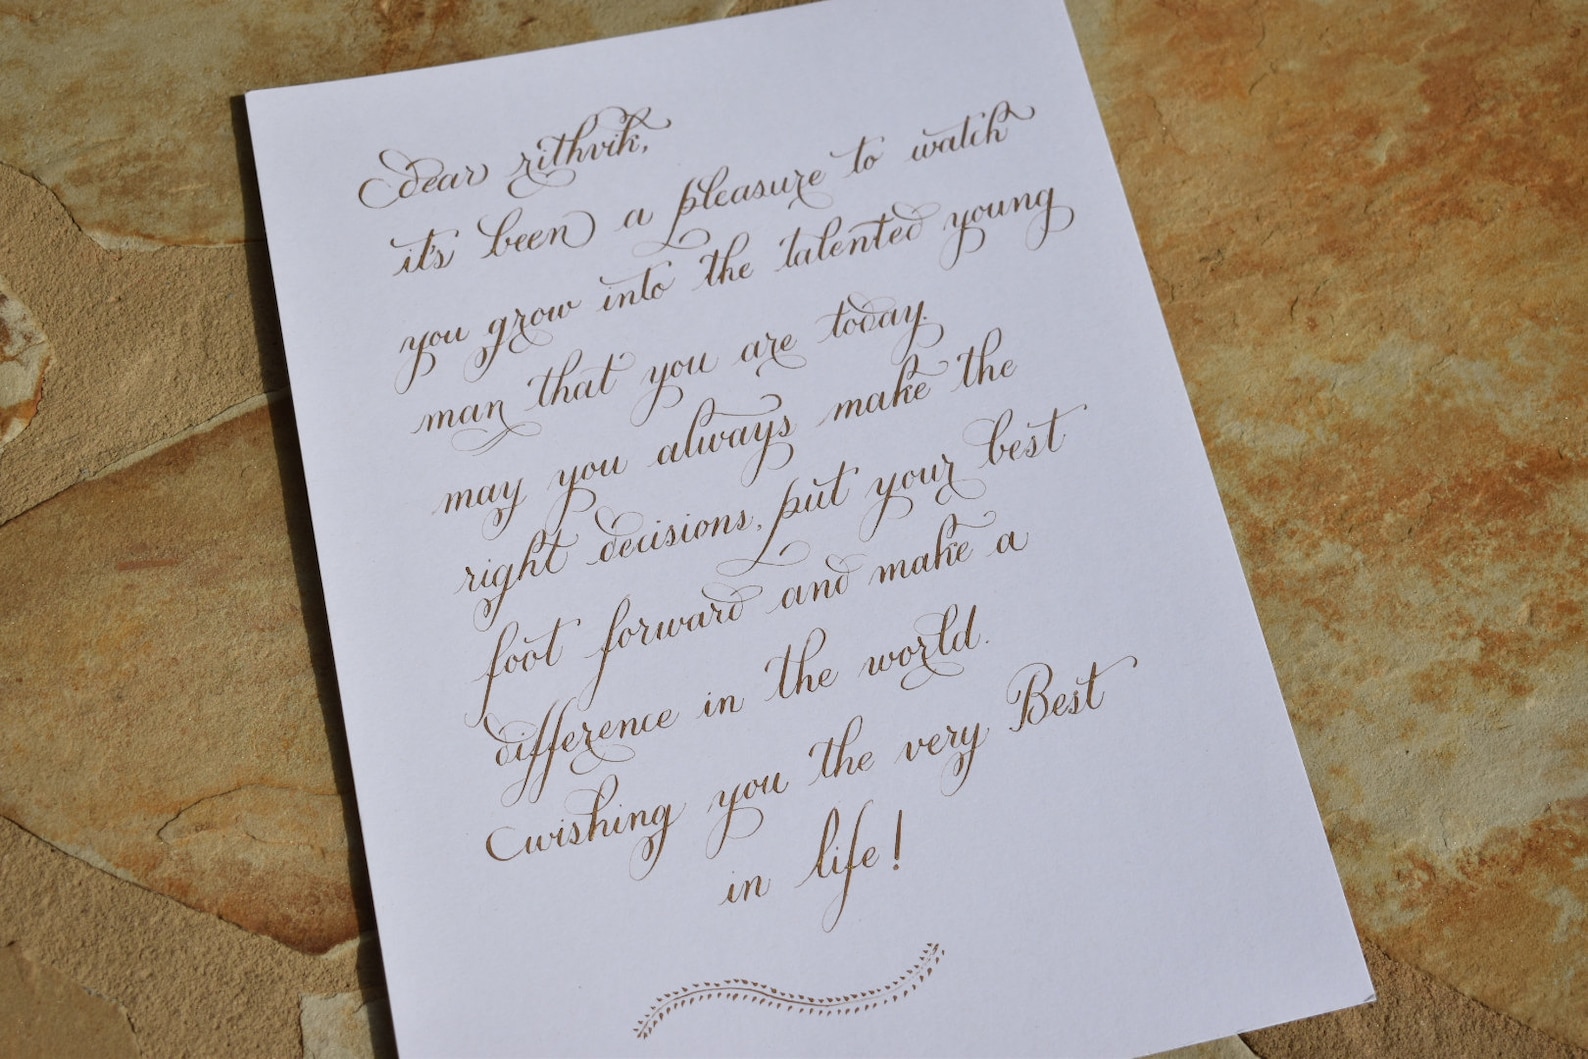 dear rithvik,
it's been a pleasure to watch
you grow into the talented young
man that you are today.
may you always make the
right decisions, put your best
foot forward and make a
difference in the world.
wishing you the very Best
in life!